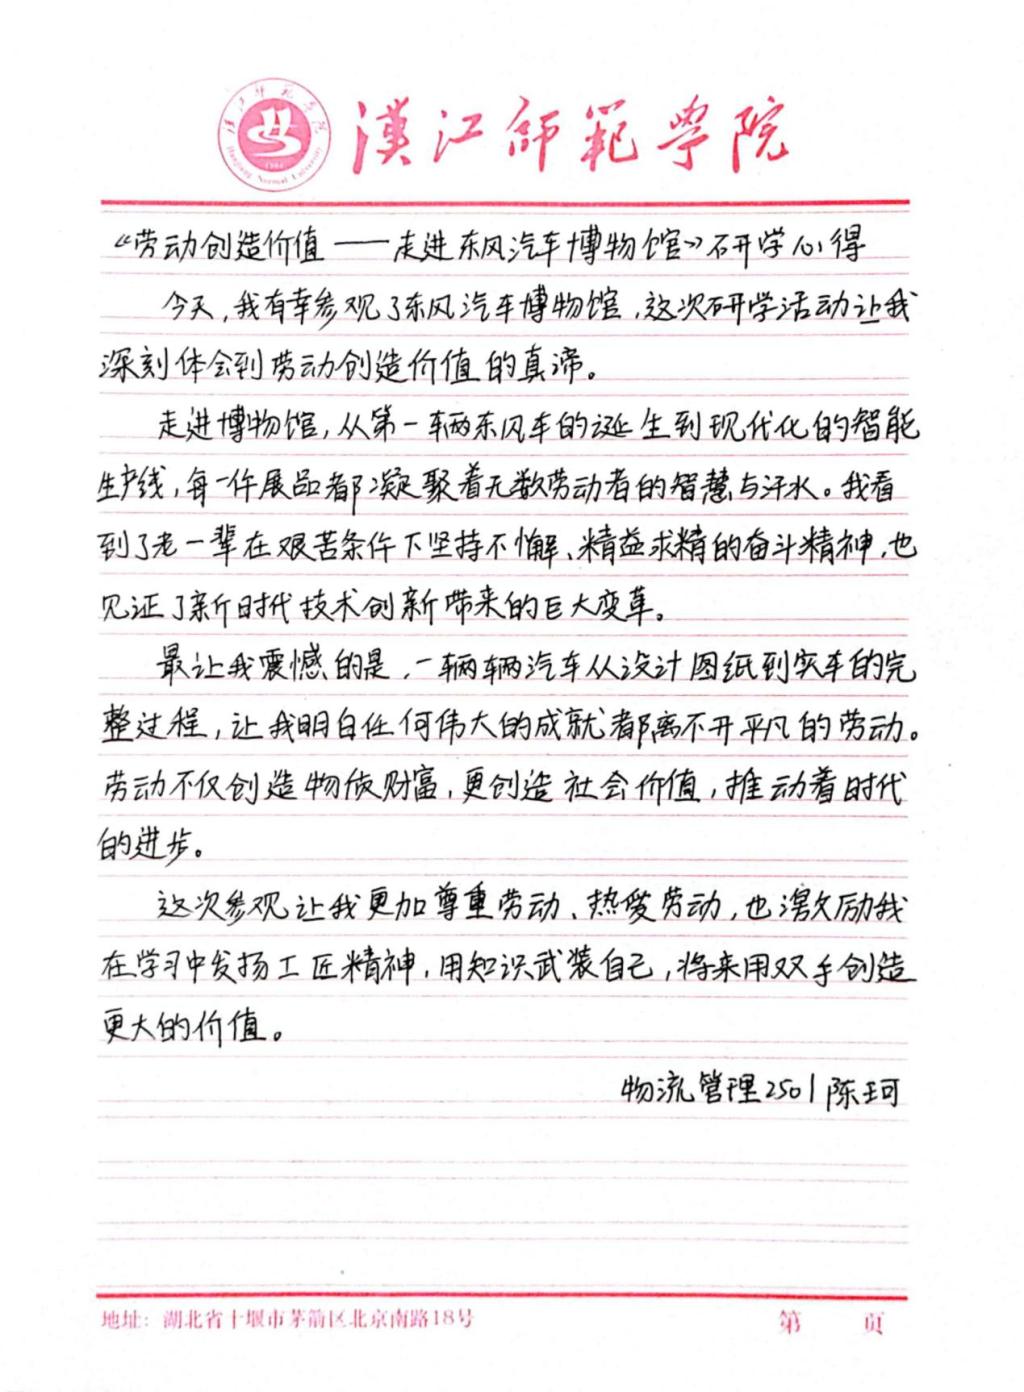 漢江師範學院
汉江师范学院
Hanjiang Normal University
1904
《劳动创造价值——走进东风汽车博物馆》研学心得
今天,我有幸参观了东风汽车博物馆,这次研学活动让我
深刻体会到劳动创造价值的真谛。
走进博物馆,从第一辆东风车的诞生到现代化的智能
生产线,每一件展品都凝聚着无数劳动者的智慧与汗水。我看
到了老一辈在艰苦条件下坚持不懈、精益求精的奋斗精神,也
见证了新时代技术创新带来的巨大变革。
最让我震憾的是,一辆辆汽车从设计图纸到实车的完
整过程,让我明白任何伟大的成就都离不开平凡的劳动。
劳动不仅创造物质财富,更创造社会价值,推动着时代
的进步。
这次参观让我更加尊重劳动、热爱劳动,也激励我
在学习中发扬工匠精神,用知识武装自己,将来用双手创造
更大的价值。
物流管理2501 陈珂
地址:湖北省十堰市茅箭区北京南路18号
第 页